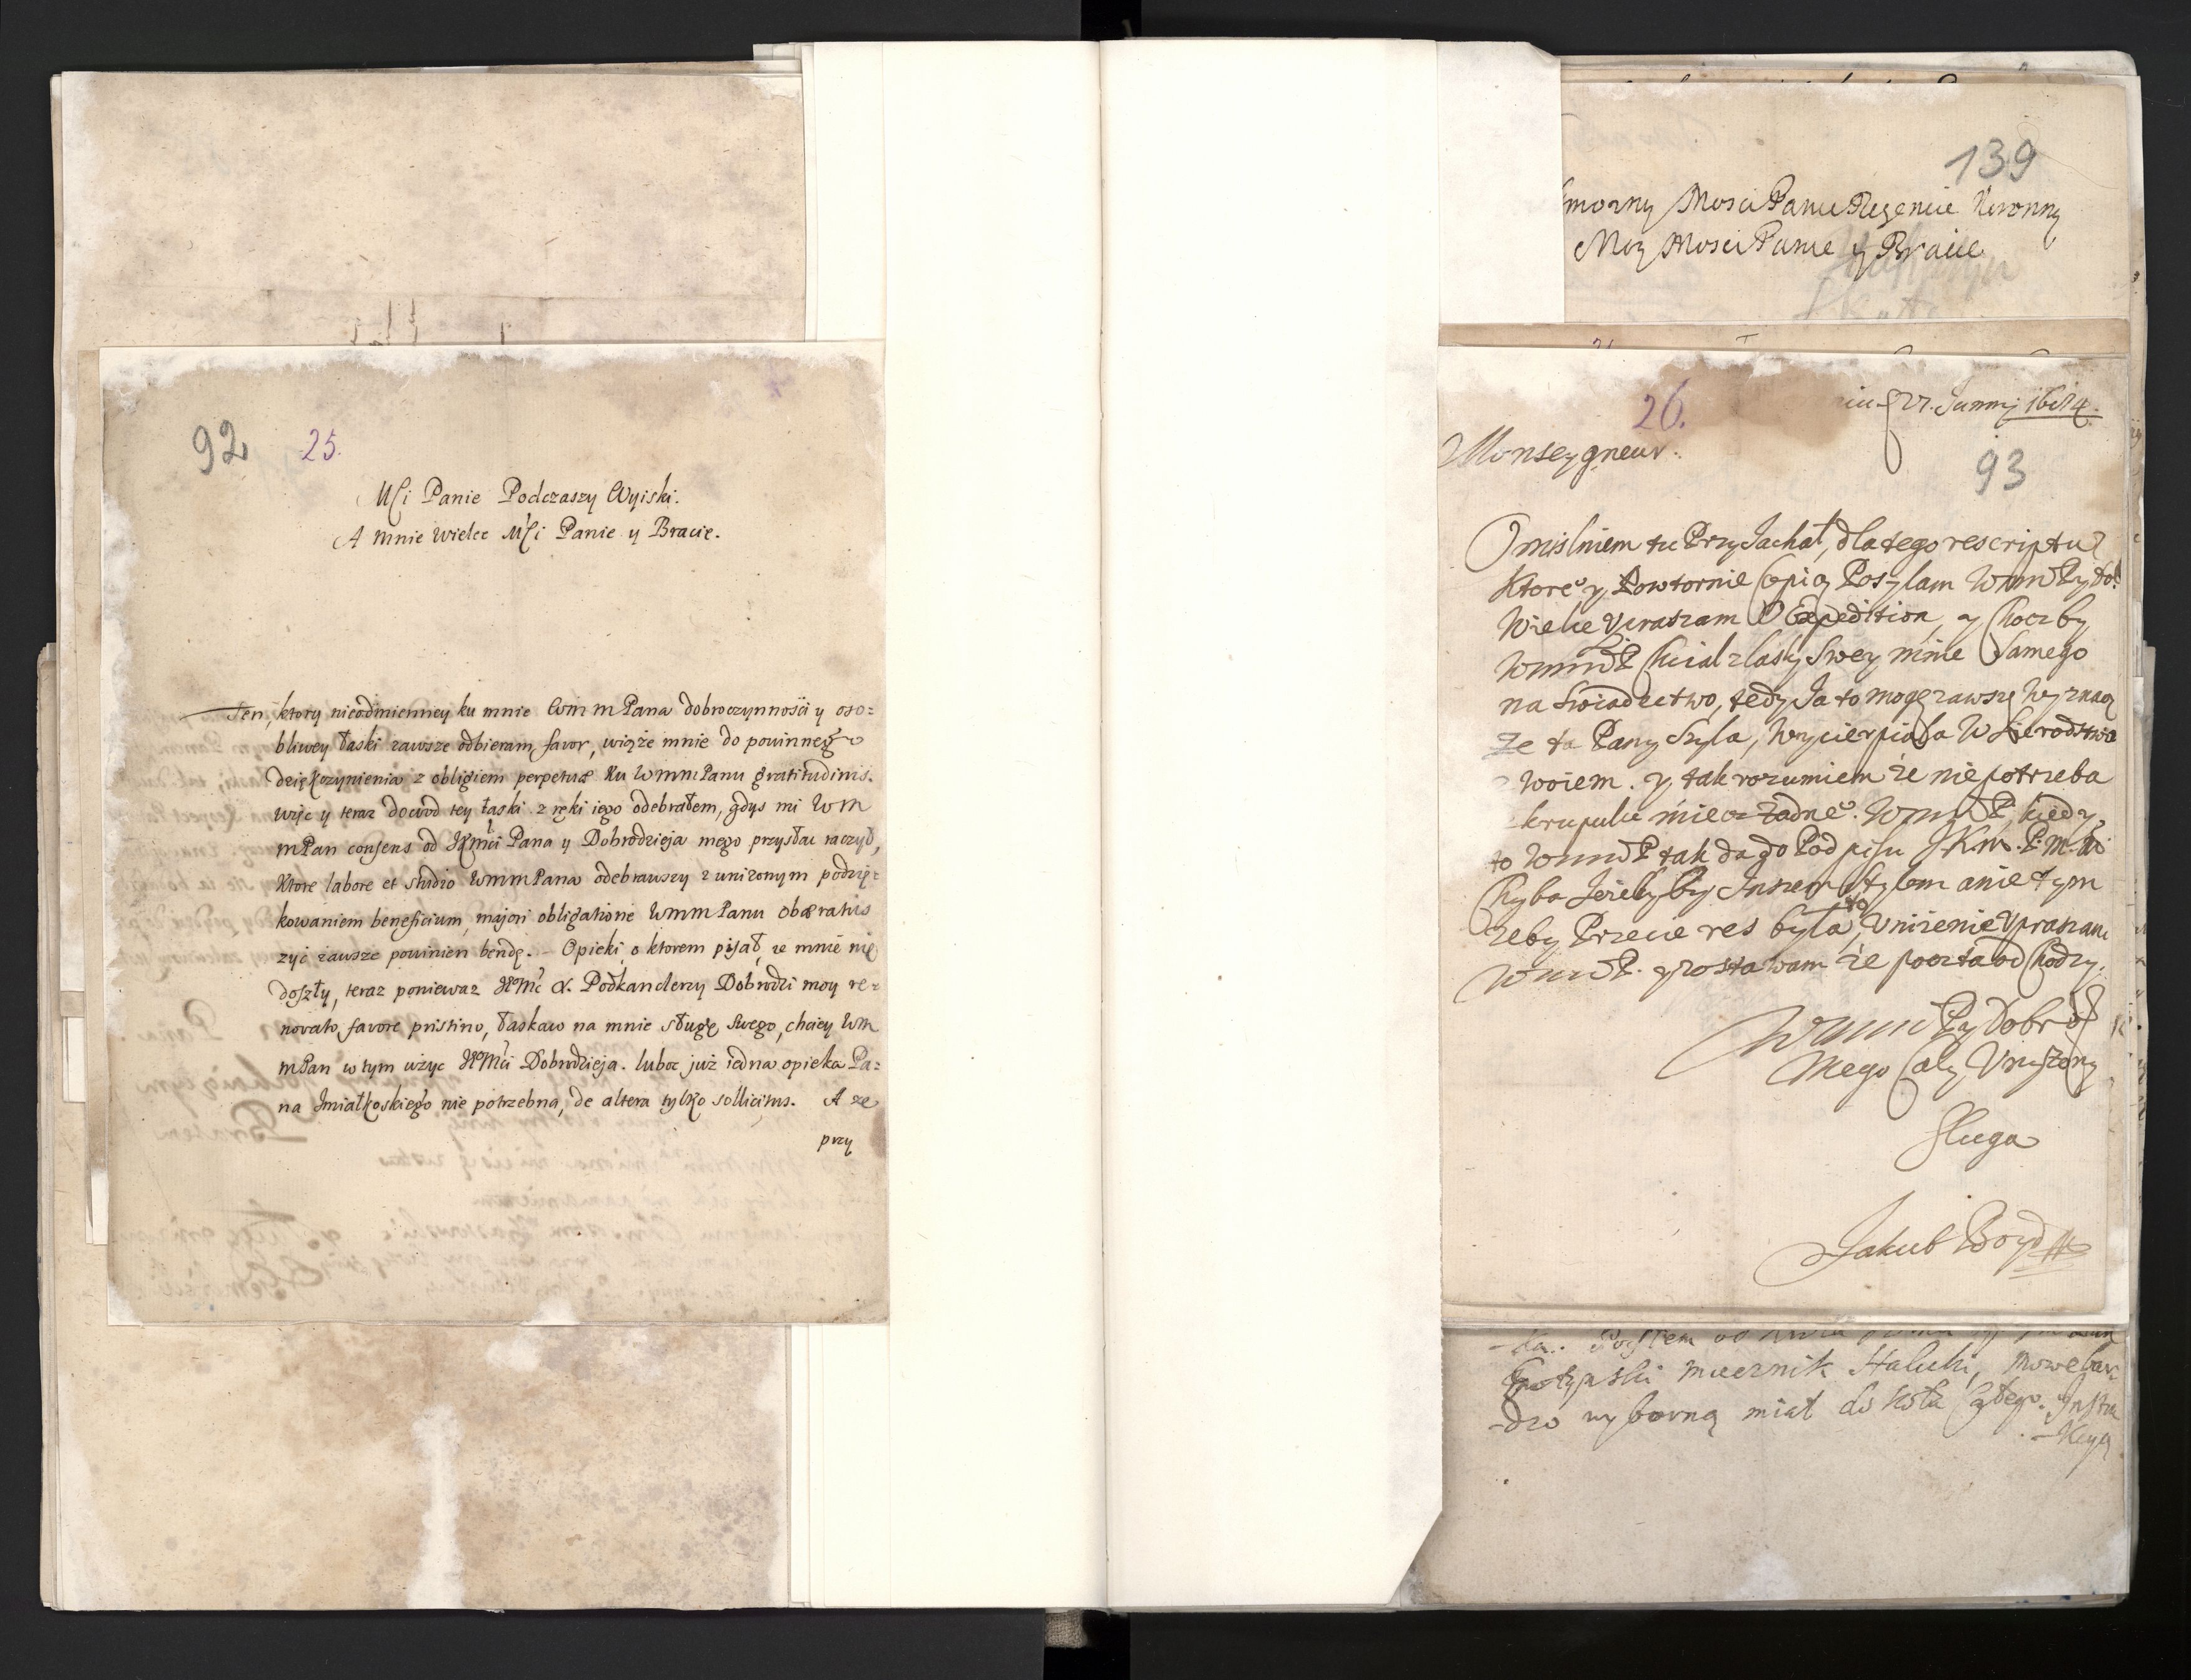 92 25.
Mſi Panie Podczaszy Wyiski.
A mnie wielce Mſci Panie y Bracie.
Ten, ktory nieodmienney ku mnie Wm m Pana dobroczynnosći y oso=
bliwey łaski zawsze odbieram, favor, wiąże mnie do powinnego
dziękczynienia z obligiem perpetuæ ku WmmPanu gratitudinis.
więc y teraz dowod tey łaski z ręki iego odebrałem, gdys mi Wm
mPan consens od JKMći Pana y Dobrodzieja mego przysłac raczył,
Ktore labore et studio WmmPana odebrawszy z unizonym podzię=
kowaniem beneficium, majori obligatione WmmPanu obæratus
zyć zawsze powinien bendę. Opieki, o ktorem pisał, ze mnie nie
doszły, teraz poniewaz Jeo Mć X. Podkanclerzy Dobrodzi moy re=
novato favore pristino, łaskaw na mnie sługę swego, chciey Wm
mPan w tym użyc JeoMći Dobrodzieja. luboc już iedna opieka Pa=
na Smiałkoskiego nie potrzebna, de altera tylko sollicitus. A ze
przy
139
morny Mosci Panie Regencie Koronny
Moy Mosci Panie y Bracie
26.
27. Junnij 1674.
93
Monseygneur.
Omislniem tu Przy Jachał, dla tego rescriptu
Ktore° y Powtornie Copią Posylam WmmP y do.
Wielce Upraszam O Expedition, y Chocz by
Wmm P Chcial z laski Swey mnie Samego
na Swiadectwo, tedy Ja to mogę zawsze wyznacz
Ze ta Pany Szyla, Wycierpiala W Sierodstwo
woiem. y tak rozumiem że nie potrzeba
krupulu miecz żadne°. Wmm P, kiedy
to Wmm P tak da do Pod pisu JKm. P. m. M.
Chyba Jeżely by Inszem stylem anie tym
zeby Przecie res była to, Unizenie Upraszam
Wmm P. y zostawam że poczta od Chodzy.
Wmm P y Dobrod
Mego Caly Uniszony
Sluga
Jakub Boyd
miecznik Halicki, mowe bar=
-dzo wyborną miał do Koła Całego. Instru
-kcyą